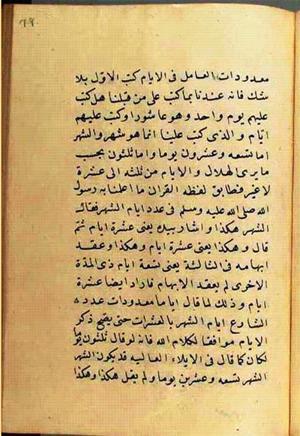 معدودات العامل في الايام كتب الاول بلا
شك فانه عندنا بما كتب على من قبلنا هل كتب
عليهم يوم واحد وهو عاشورا وكتب عليهم
ايام والذي كتب علينا انما هو شهر والشهر
اما تسعة وعشرون يوما واما ثلثون بحسب
ما يرى الهلال والايام من ثلثه الى عشرة
لا غير فتطابق لفظه القران ما اعلنا به رسول
الله صلى الله عليه وسلم في عدد ايام الشهر فقال
الشهر هكذا واشار بيده يعني عشرة ايام ثم
قال وهكذا يعني عشرة ايام وهكذا وعقد
ابهامه في الثالثة يعني تسعة ايام وفي المدة
الاخرى لم يعقد الابهام فاراد ايضا عشرة
ايام وذلك لما قال اياما معدودات عدد
الشارع ايام الشهر بالعشرات حتى يصح ذكر
الايام موافقا لكلام الله فانه لو قال ثلثون يوما
لكان كما قال في الايلاء العاليه قد يكون الشهر
الشهر تسعه وعشرين يوما ولم يقل هكذا وهكذا